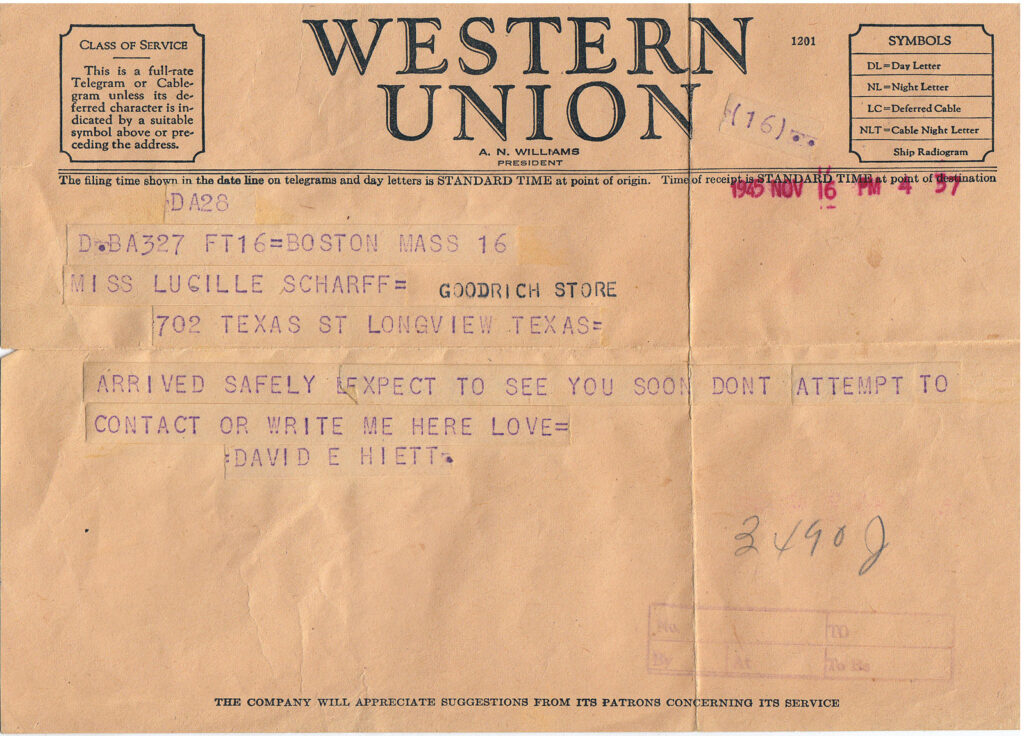 WESTERN
UNION
1201
A. N. WILLIAMS
PRESIDENT
CLASS OF SERVICE
This is a full-rate
Telegram or Cable-
gram unless its de-
ferred character is in-
dicated by a suitable
symbol above or pre-
ceding the address.
SYMBOLS
DL=Day Letter
NL=Night Letter
LC=Deferred Cable
NLT=Cable Night Letter
Ship Radiogram
(16)..
The filing time shown in the date line on telegrams and day letters is STANDARD TIME at point of origin. Time of receipt is STANDARD TIME at point of destination
1945 NOV 16 PM 4 37
DA28
D.BA327 FT16=BOSTON MASS 16
MISS LUCILLE SCHARFF= GOODRICH STORE
702 TEXAS ST LONGVIEW TEXAS=
ARRIVED SAFELY EXPECT TO SEE YOU SOON DONT ATTEMPT TO
CONTACT OR WRITE ME HERE LOVE=
:DAVID E HIETT.
3490J
No. TO
By At To Be
THE COMPANY WILL APPRECIATE SUGGESTIONS FROM ITS PATRONS CONCERNING ITS SERVICE